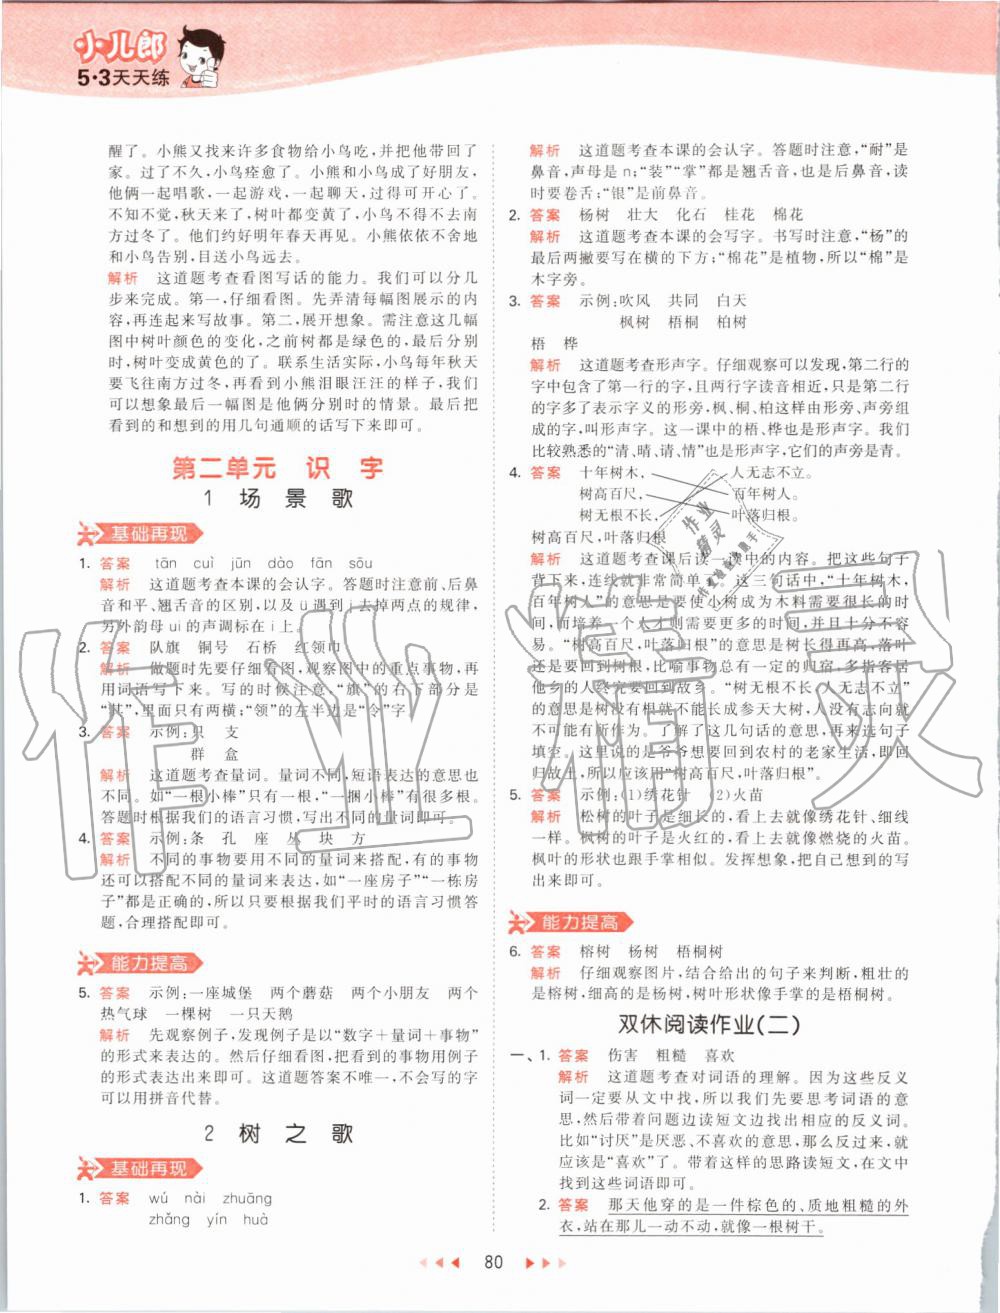 小儿郎
5·3天天练
醒了。小熊又找来许多食物给小鸟吃，并把他带回了
家。过了不久，小鸟痊愈了。小熊和小鸟成了好朋友，
他俩一起唱歌，一起游戏，一起聊天，过得可开心了。
不知不觉，秋天来了，树叶都变黄了，小鸟不得不去南
方过冬了。他们约好明年春天再见。小熊依依不舍地
和小鸟告别，目送小鸟远去。
解析 这道题考查看图写话的能力。我们可以分几
步来完成。第一，仔细看图。先弄清每幅图展示的内
容，再连起来写故事。第二，展开想象。需注意这几幅
图中树叶颜色的变化，之前树都是绿色的，最后分别
时，树叶变成黄色的了。联系生活实际，小鸟每年秋天
要飞往南方过冬，再看到小熊泪眼汪汪的样子，我们
可以想象最后一幅图是他俩分别时的情景。最后把
看到的和想到的用几句通顺的话写下来即可。
第二单元 识 字
1 场 景 歌
基础再现
1. 答案 tān cuì jūn dào fān sōu
解析 这道题考查本课的会认字。答题时注意前、后鼻
音和平、翘舌音的区别，以及ü遇到j去掉两点的规律，
另外韵母ui的声调标在i上。
2. 答案 队旗 铜号 石桥 红领巾
解析 做题时先要仔细看图，观察图中的重点事物，再
用词语写下来。写的时候注意，“旗”的右下部分是
“其”，里面只有两横；“领”的左半边是“令”字
3. 答案 示例：只 支
群 盒
解析 这道题考查量词。量词不同，短语表达的意思也
不同。如“一根小棒”只有一根，“一捆小棒”有很多根。
答题时根据我们的语言习惯，写出不同的量词即可。
4. 答案 示例：条 孔 座 丛 块 方
解析 不同的事物要用不同的量词来搭配，有的事物
还可以搭配不同的量词来表达，如“一座房子”“一栋房
子”都是正确的，所以只要根据我们平时的语言习惯答
题，合理搭配即可。
能力提高
5. 答案 示例：一座城堡 两个蘑菇 两个小朋友 两个
热气球 一棵树 一只天鹅
解析 先观察例子，发现例子是以“数字＋量词＋事物”
的形式来表达的。然后仔细看图，把看到的事物用例子
的形式表达出来。这道题答案不唯一，不会写的字可
以用拼音代替。
2 树 之 歌
基础再现
1. 答案 wú nài zhuāng
zhǎng yín huà
解析 这道题考查本课的会认字。答题时注意，“耐”是
鼻音，声母是n；“装”“掌”都是翘舌音，也是后鼻音，读
时要卷舌；“银”是前鼻音。
2. 答案 杨树 壮大 化石 桂花 棉花
解析 这道题考查本课的会写字。书写时注意，“杨”的
最后两撇要写在横的下方；“棉花”是植物，所以“棉”是
木字旁。
3. 答案 示例：吹风 共同 白天
枫树 梧桐 柏树
梧 桦
解析 这道题考查形声字。仔细观察可以发现，第二行的
字中包含了第一行的字，且两行字读音相近，只是第二行
的字多了表示字义的形旁，枫、桐、柏这样由形旁、声旁组
成的字，叫形声字。这一课中的梧、桦也是形声字，我们
比较熟悉的“清、晴、情”也是形声字，它们的声旁是青。
4. 答案 十年树木， 人无志不立。
树高百尺， 百年树人。
树无根不长， 叶落归根。
树高百尺，叶落归根
解析 这道题考查课后读一读中的内容。把这些句子
背下来，连线就非常简单了。这三句话中，“十年树木，
百年树人”的意思是要使小树成为木料需要很长的时
间，而培养一个人才则需要更多的时间，并且十分不容
易。“树高百尺，叶落归根”的意思是树长得再高，落叶
还是要回到树根，比喻事物总有一定的归宿，多指客居
他乡的人终究要回到故乡。“树无根不长，人无志不立”
的意思是树没有根就不能长成参天大树，人没有志向就
不可能有所作为。了解了这几句话的意思，再选句子
填空。这里说的是爷爷想要回到农村的老家生活，即回
归故土，所以应该用“树高百尺，叶落归根”。
5. 答案 示例：(1)绣花针 (2)火苗
解析 松树的叶子是细长的，看上去就像绣花针、细线
一样。枫树的叶子是火红的，看上去就像燃烧的火苗。
枫叶的形状也跟手掌相似。发挥想象，把自己想到的写
出来即可。
能力提高
6. 答案 榕树 杨树 梧桐树
解析 仔细观察图片，结合给出的句子来判断，粗壮的
是榕树，细高的是杨树，树叶形状像手掌的是梧桐树。
双休阅读作业(二)
一、1. 答案 伤害 粗糙 喜欢
解析 这道题考查对词语的理解。因为这些反义
词一定要从文中找，所以我们先要思考词语的意
思，然后带着问题边读短文边找出相应的反义词。
比如“讨厌”是厌恶、不喜欢的意思，那么反过来，就
应该是“喜欢”了。带着这样的思路读短文，在文中
找到这些词语即可。
2. 答案 那天他穿的是一件棕色的、质地粗糙的外
衣，站在那儿一动不动，就像一根树干。
80
作业精灵
作业精灵